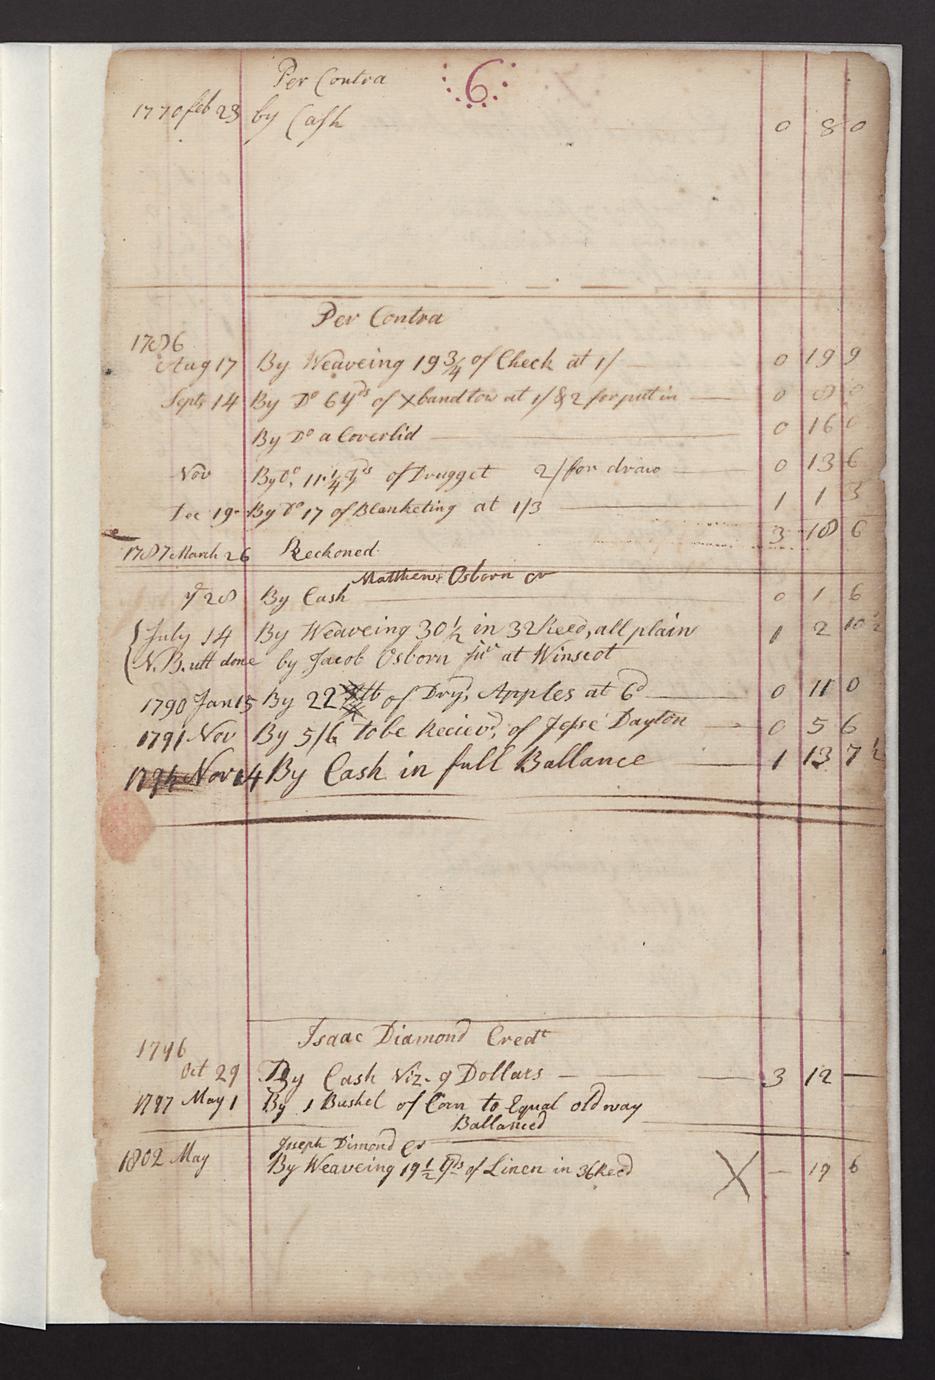 Per Contra
6
1770 feb 23 by Cash 0 8 0
Per Contra
1786
Aug 17 By Weaveing 19 3/4 of Check at 1/ 0 19 9
Septr 14 By Do 6 yds of Xband tow at 1/ & 2 for put in 0 8 0
By Do a Coverlid 0 16 0
Nov By Do, 11 1/4 yds of Drugget 2/ for draw 0 13 6
Dec 19 By Do 17 of Blanketing at 1/3 1 1 3
3 18 6
1787 March 26 Reckoned
Matthew Osborn cr
28 By Cash 0 1 6
July 14 By Weaveing 30 1/2 in 32 Reed, all plain 1 2 10 1/2
N.B. utt done by Jacob Osborn Jur at Winscot
1790 Jan 15 By 22 lb of Dryd Apples at 6d 0 11 0
1791 Nov By 5/6 to be Recievd, of Jesse Dayton 0 5 6
1794 Nov 14 By Cash in full Ballance 1 13 7 1/2
Isaac Diamond Credt
1796
Oct 29 By Cash Viz. 9 Dollars 3 12 —
1797 May 1 By 1 Bushel of Corn to Equal old way
Ballanced
Joseph Dimond Cr
1802 May By Weaveing 19 1/2 yds of Linen in 36 Reed X — 19 6